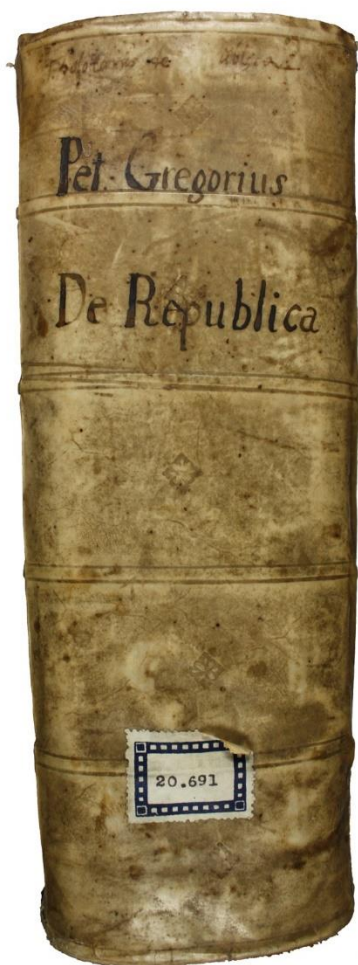 Pet. Gregorius
De Republica
20.691